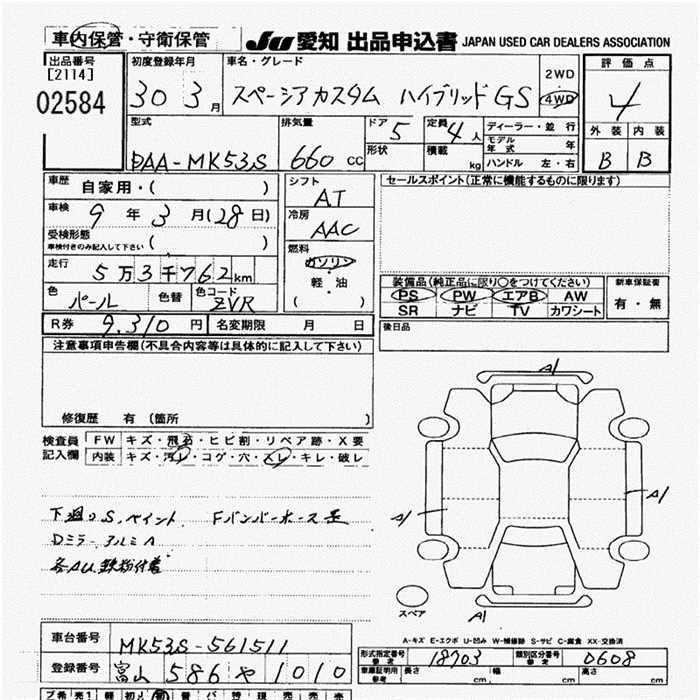 車内保管・守衛保管
JU愛知 出品申込書 JAPAN USED CAR DEALERS ASSOCIATION
出品番号
[2114]
02584
初度登録年月
30 3月
車名・グレード
スペーシアカスタム ハイブリッドGS
2WD
4WD
評価点
4
外装 内装
B B
型式
DAA-MK53S
排気量
660 CC
ドア 5
形状
定員 4人
積載 kg
ディーラー・並行
モデル年式 年
ハンドル 左・右
車歴 自家用・( )
車検 9年3月(28日)
受検形態
車検付きのみ記入して下さい ( )
走行 5万3千762km
色 パール 色替 色コード ZVR
シフト
AT
冷房
AAC
燃料
ガソリン
軽・油
( )
セールスポイント(正常に機能するものに限ります)
装備品(純正品に限り○をつけてください)
PS PW エアB AW
SR ナビ TV カワシート
新車保証書
有・無
後日品
R券 9,310円 名変期限 月 日
注意事項申告欄(不具合内容等は具体的に記入して下さい)
修復歴 有 (箇所 )
検査員記入欄
FW キズ・飛石・ヒビ割・リペア跡・X要
内装 キズ・汚レ・コゲ・穴・スレ・キレ・破レ
下廻りS,ペイント Fバンパーホース歪
Dミラーアルミハ
A1
A1
A1
A1
スペア
A-キズ E-エクボ U-凹み W-補修跡 S-サビ C-腐食 XX-交換済
車台番号 MK53S-561511
登録番号 富山 586 や 1010
形式指定番号 参考 18703
類別区分番号 参考 0608
車庫証明用 参考 長さ cm 幅 cm 高さ cm